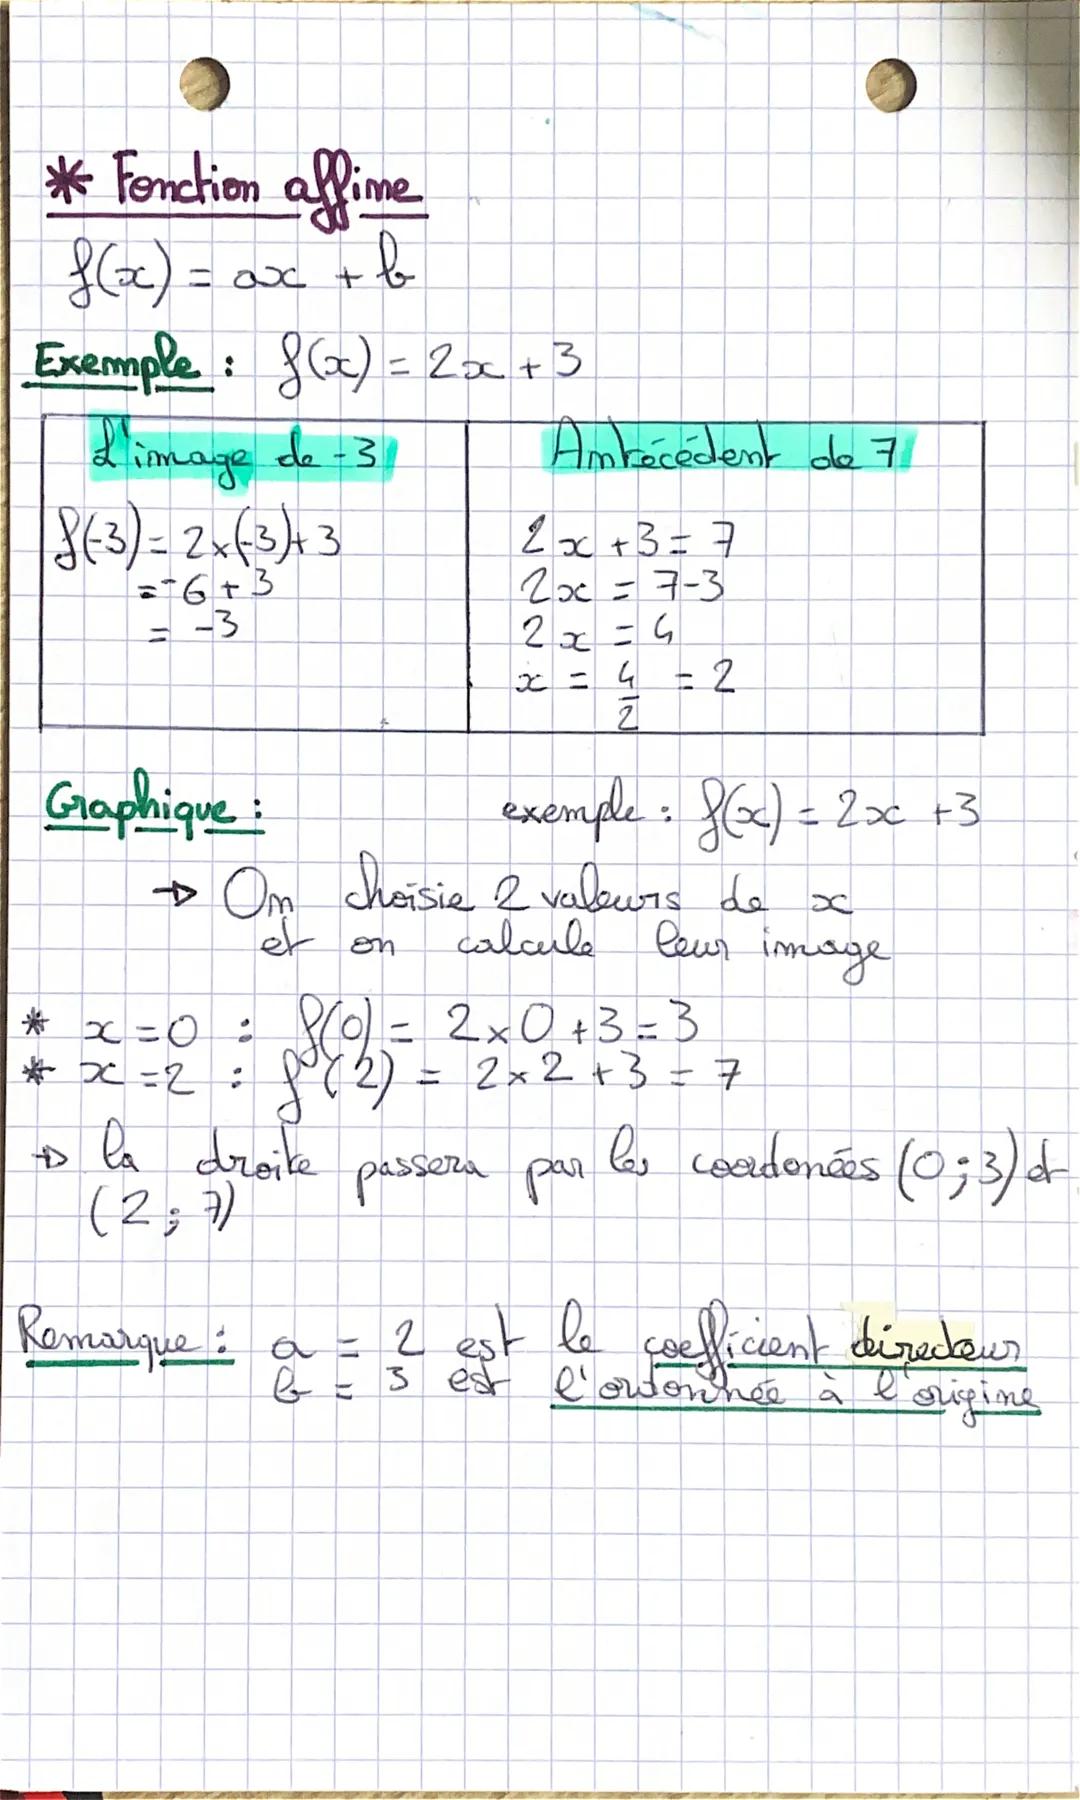 * Fonction affine
f(x) = ax + b
Exemple : f(x) = 2x + 3
L'image de -3
f(-3) = 2×(-3)+3
= -6 + 3
= -3
Antécédent de 7
2x + 3 = 7
2x = 7-3
2x = 4
x = 4/2 = 2
Graphique :
exemple : f(x) = 2x + 3
→ On choisie 2 valeurs de x
et on calcule leur image
* x = 0 : f(0) = 2×0 + 3 = 3
* x = 2 : f(2) = 2×2 + 3 = 7
→ la droite passera par les coordonées (0;3) et
(2;7)
Remarque : a = 2 est le coefficient directeur
b = 3 est l'ordonnée à l'origine